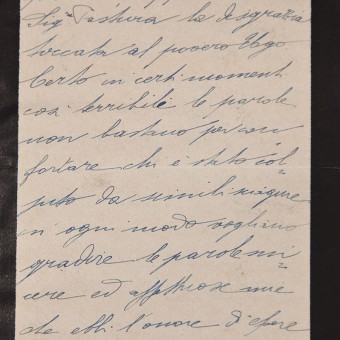 Sig. Pastura la disgrazia
toccata al povero Ugo
Certo in certi momenti
così terribili le parole
non bastano per con
fortare chi è stato col=
pito da simili sciagure
in ogni modo vogliano
gradire le parole sin=
cere ed affettuose mie
che ebbi l'onore d'essere